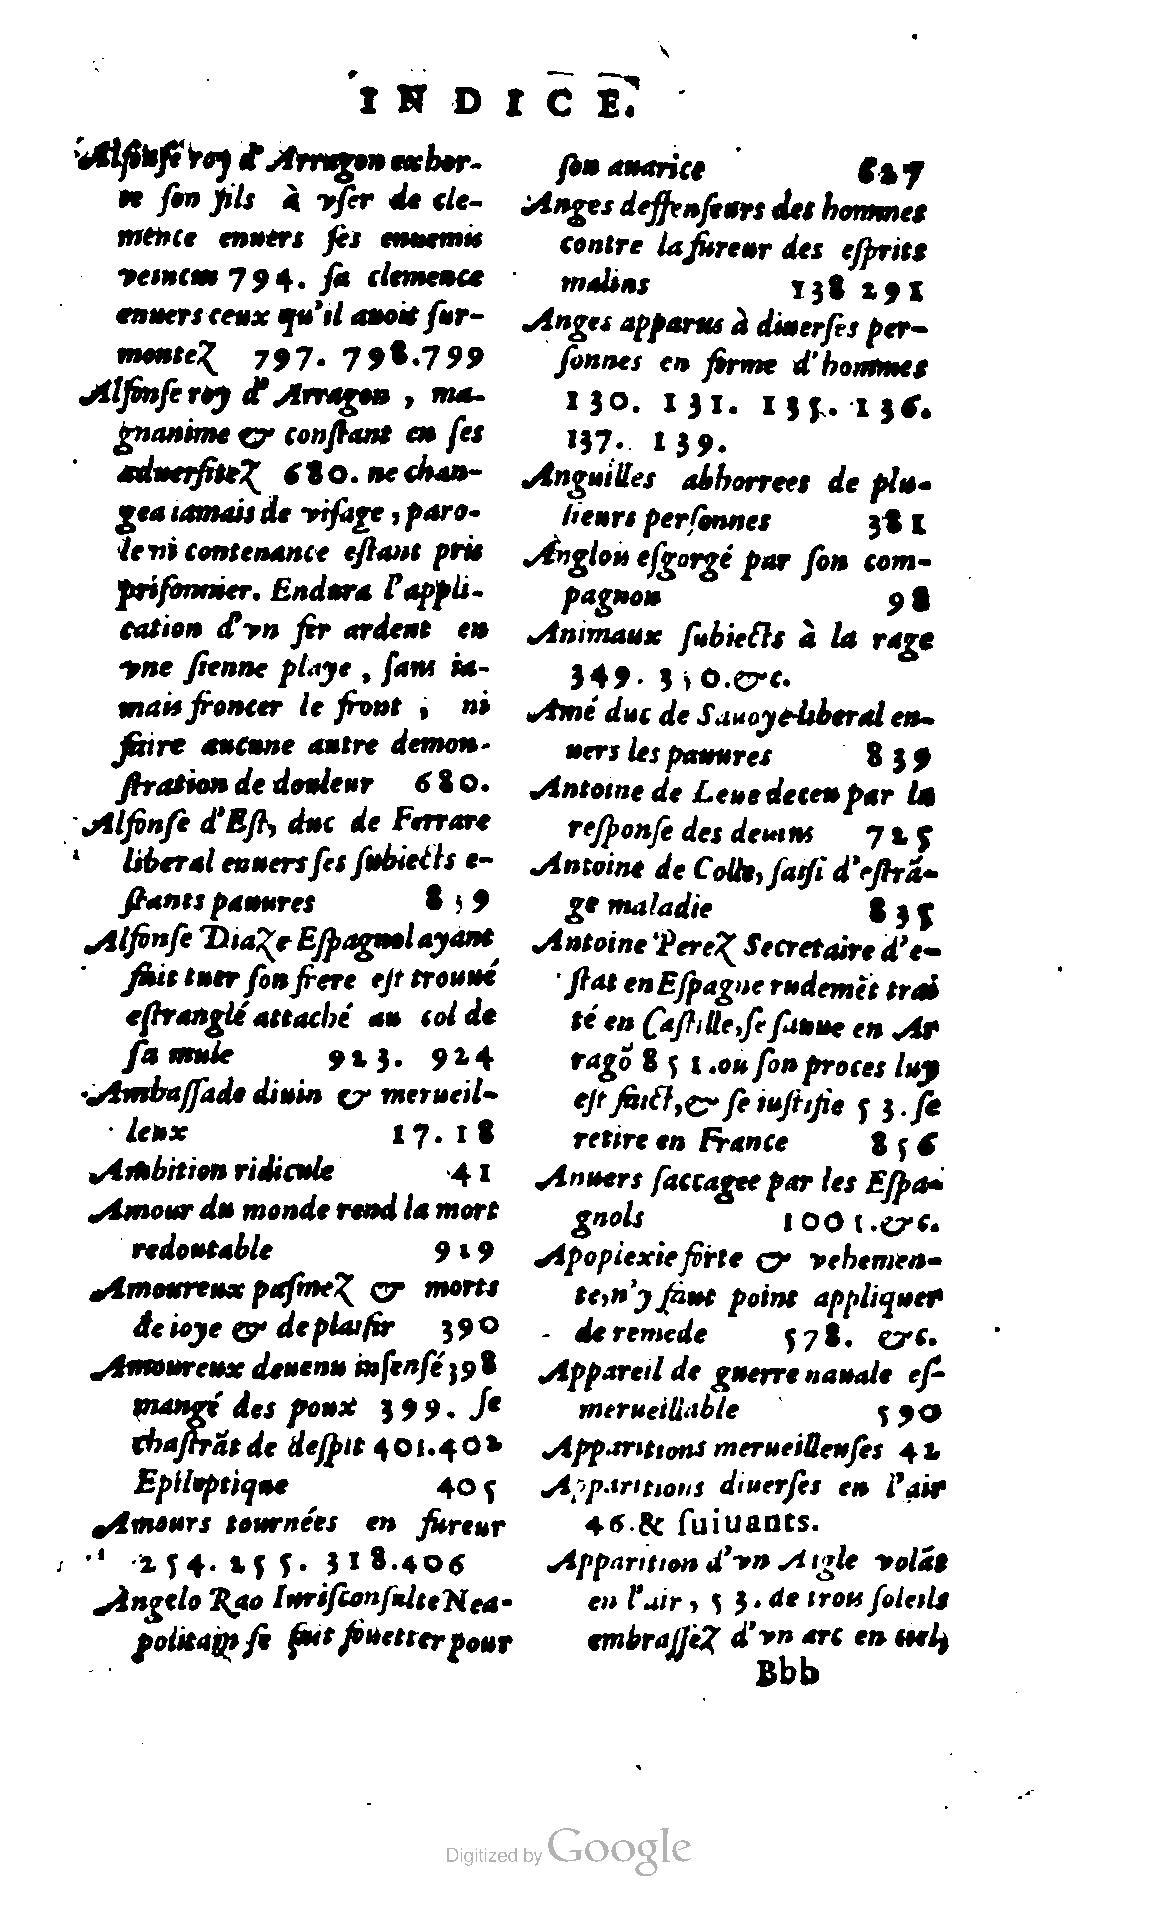 INDICE.
Alfonse roy d'Arragon exhor-
te son fils à vser de cle-
mence enuers ses ennemis
veincus 794. sa clemence
enuers ceux qu'il auoit sur-
montez 797. 798.799
Alfonse roy d'Arragon, ma-
gnanime & constant en ses
aduersitez 680. ne chan-
gea iamais de visage, paro-
le ni contenance estant pris
prisonnier. Endura l'appli-
cation d'vn fer ardent en
vne sienne playe, sans ia-
mais froncer le front, ni
faire aucune autre demon-
stration de douleur 680.
Alfonse d'Est, duc de Ferrare
liberal enuers ses subiects e-
stants pauures 839
Alfonse Diaze Espagnol ayant
fait tuer son frere est trouué
estranglé attaché au col de
sa mule 923. 924
Ambassade diuin & merueil-
leux 17.18
Ambition ridicule 41
Amour du monde rend la mort
redoutable 919
Amoureux pasmez & morts
de ioye & de plaisir 390
Amoureux deuenu insensé 398
mangé des poux 399. se
chastrãt de despit 401.402
Epileptique 405
Amours tournées en fureur
254. 255. 318.406
Angelo Rao Iurisconsulte Nea-
politain se fait fouetter pour
son auarice 627
Anges deffenseurs des hommes
contre la fureur des esprits
malins 138 291
Anges apparus à diuerses per-
sonnes en forme d'hommes
130. 131. 135. 136.
137. 139.
Anguilles abhorrees de plu-
sieurs personnes 381
Anglois esgorgé par son com-
pagnon 98
Animaux subiects à la rage
349. 350.&c.
Amé duc de Sauoye liberal en-
uers les pauures 839
Antoine de Leue deceu par la
response des deuins 725
Antoine de Colle, saisi d'estrã-
ge maladie 835
Antoine Perez Secretaire d'e-
stat en Espagne rudemẽt trai
té en Castille, se sauue en Ar
ragõ 851.ou son proces luy
est faict, & se iustifie 53. se
retire en France 856
Anuers saccagee par les Espa-
gnols 1001.&c.
Apoplexie forte & vehemen-
te, n'y faut point appliquer
de remede 578. &c.
Appareil de guerre nauale es-
merueillable 590
Apparitions merueilleuses 42
Apparitions diuerses en l'air
46.& suiuants.
Apparition d'vn Aigle volãt
en l'air, 53. de trois soleils
embrassez d'vn arc en ciel,
Bbb
Digitized by Google